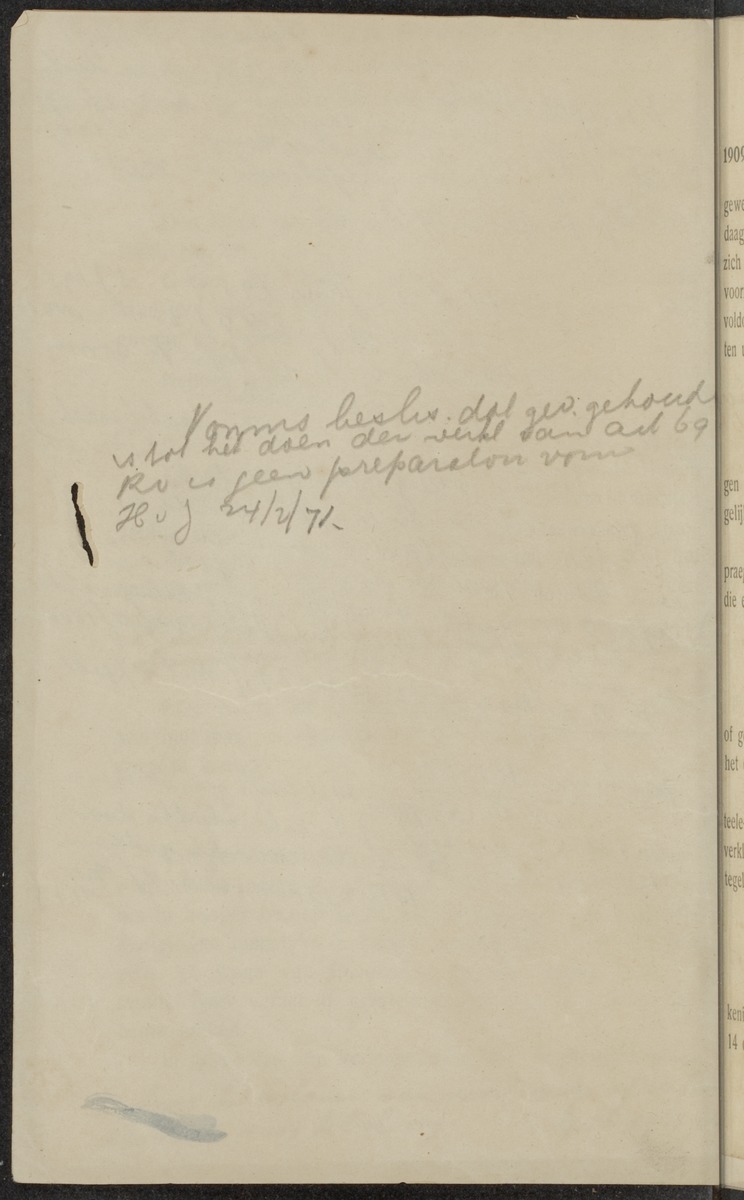 Vonnis beslis. dat ged. gehoud
is tot het doen der verkl van art 69
Rv is geen preparatoir vonn
H v J 24/2/71.
1909
gewe
daag
zich
voor
vold
ten
gen
gelij
prae
die
of g
het
teele
verkl
tegel
keni
14